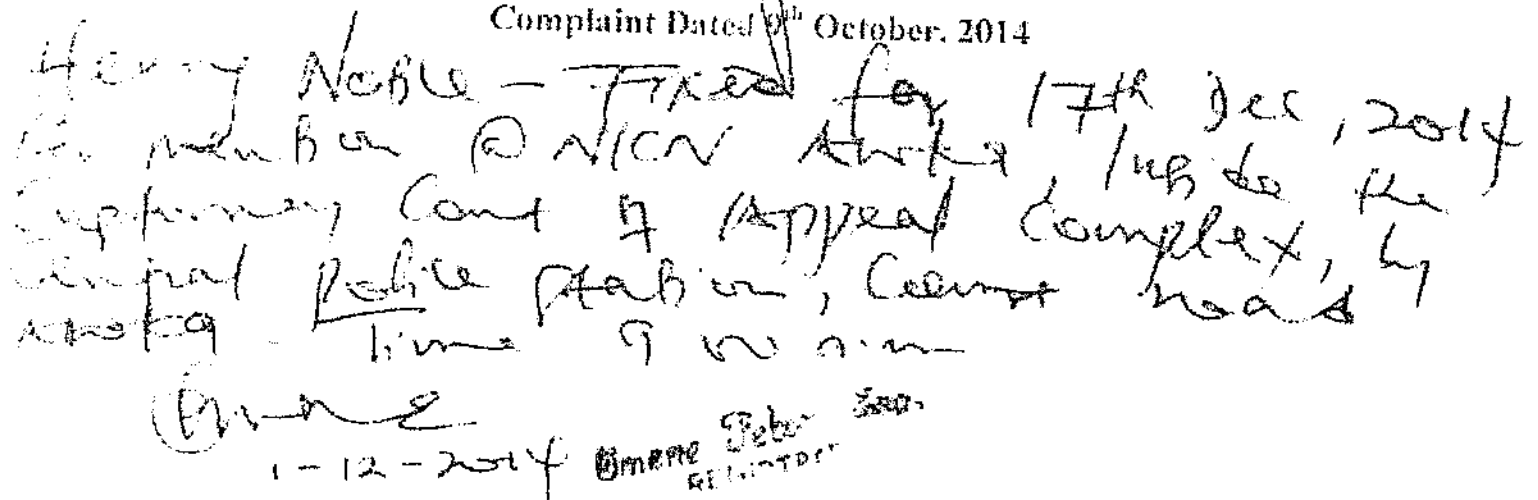 Complaint Dated 9th October, 2014
Henry Noble - Fixed for 17th Dec, 2014
for mention @ NICN Awka, Inside the
Customary Court of Appeal Complex, by
Central Police Station, Court road
Awka. Time 9 00 a.m
1-12-2014 Omene Peter
REGISTRAR